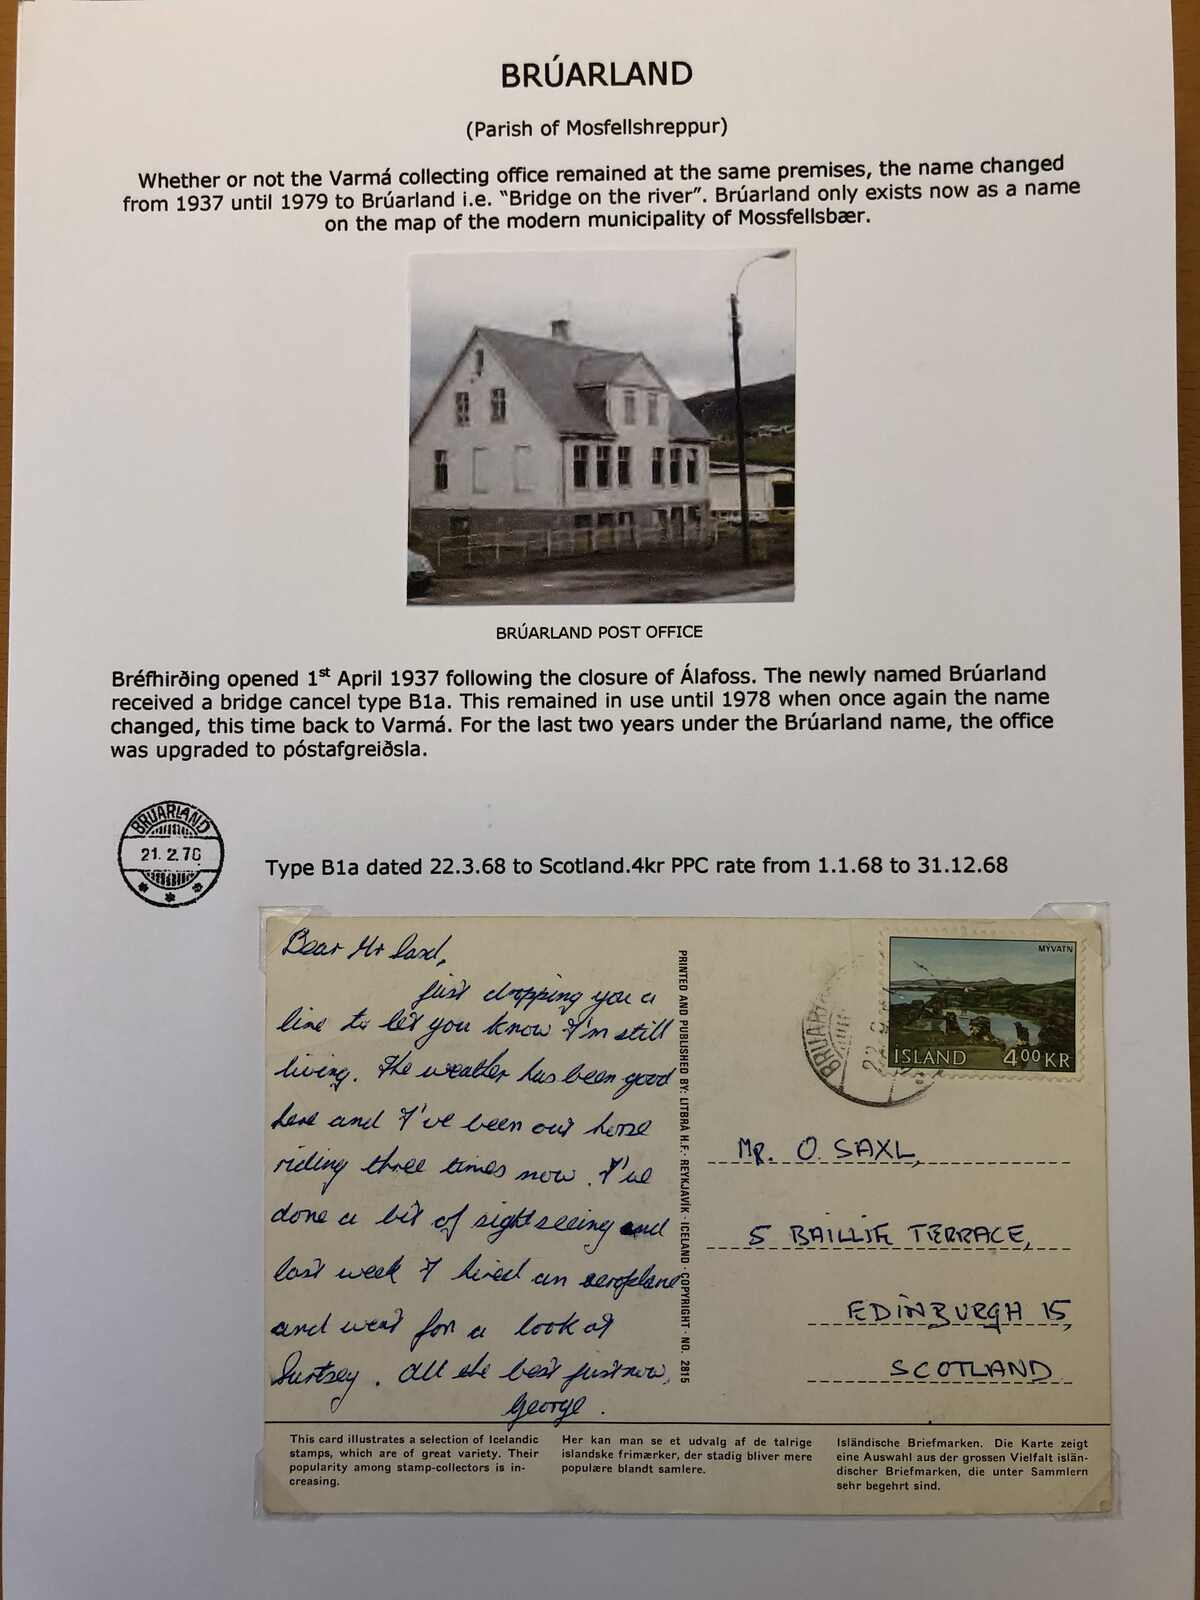 BRÚARLAND
(Parish of Mosfellshreppur)
Whether or not the Varmá collecting office remained at the same premises, the name changed
from 1937 until 1979 to Brúarland i.e. “Bridge on the river”. Brúarland only exists now as a name
on the map of the modern municipality of Mossfellsbær.
BRÚARLAND POST OFFICE
Bréfhirðing opened 1st April 1937 following the closure of Álafoss. The newly named Brúarland
received a bridge cancel type B1a. This remained in use until 1978 when once again the name
changed, this time back to Varmá. For the last two years under the Brúarland name, the office
was upgraded to póstafgreiðsla.
BRUARLAND
21. 2.76
Type B1a dated 22.3.68 to Scotland.4kr PPC rate from 1.1.68 to 31.12.68
Dear Mr Saxl,
just dropping you a
line to let you know I'm still
living. The weather has been good
here and I've been out horse
riding three times now. I've
done a bit of sightseeing and
last week I hired an aeroplane
and went for a look at
Surtsey. All the best just now,
George.
PRINTED AND PUBLISHED BY: LITBRÁ H.F. · REYKJAVÍK · ICELAND · COPYRIGHT · NO. 2815
MÝVATN
ÍSLAND 4⁰⁰ KR
BRUARL
22
MR. O. SAXL,
5 BAILLIE TERRACE,
EDINBURGH 15,
SCOTLAND
This card illustrates a selection of Icelandic
stamps, which are of great variety. Their
popularity among stamp-collectors is in-
creasing.
Her kan man se et udvalg af de talrige
islandske frimærker, der stadig bliver mere
populære blandt samlere.
Isländische Briefmarken. Die Karte zeigt
eine Auswahl aus der grossen Vielfalt islän-
discher Briefmarken, die unter Sammlern
sehr begehrt sind.